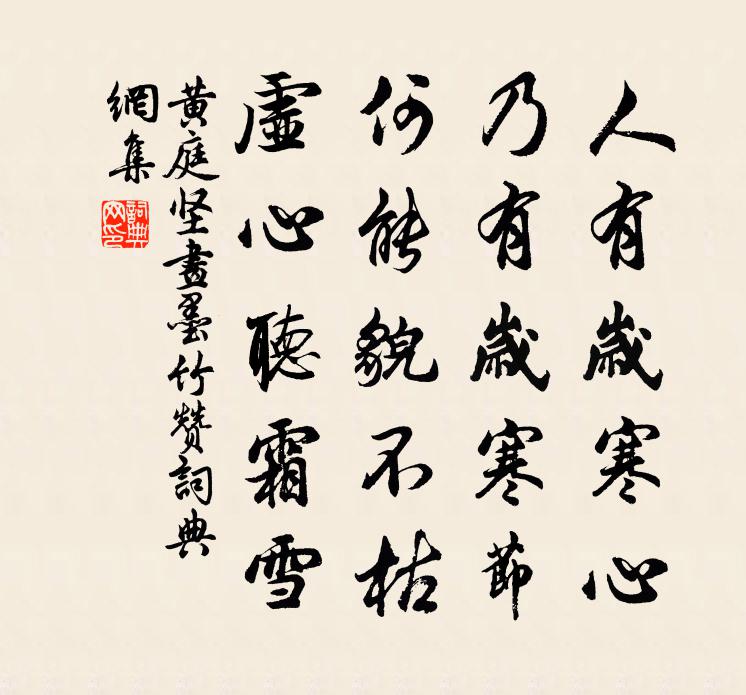 人有歲寒心
乃有歲寒節
何能貌不枯
虛心聽霜雪
黄庭坚畫墨竹赞詞典
網集
詞典
网印